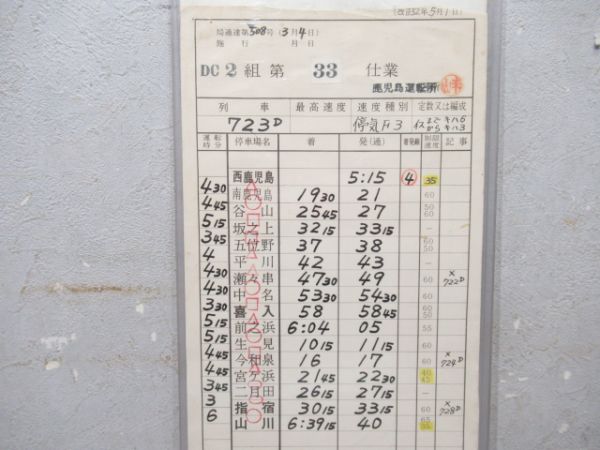 (改正32年5月1日)
局通達第508号(3月4日)
施行 月 日
DC2組第 33 仕業
鹿児島運転所
列車 最高速度 速度種別 定数又は編成
723D 停気F3
運転時分 停車場名 着 発(通) 着発線 制限速度 記事
西鹿児島 5:15 4 35
4 30
南鹿児島 19 30 21 60
4 45
谷山 25 45 27 50 60
5 15
坂之上 32 15 33 15 –
3 45
五位野 37 38 60 50
4
平川 42 43 –
4 30
瀬々串 47 30 49 60 ×722D
4 30
中名 53 30 54 30 60
3 30
喜入 58 58 45 60
5 15
前之浜 6:04 05 55
5 15
生見 10 15 11 15 –
4 45
今和泉 16 17 60 ×724D
4 45
宮ケ浜 21 45 22 30 40 45
3 45
二月田 26 15 27 15 –
3
指宿 30 15 33 15 60 ×728D
6
山川 6:39 15 40